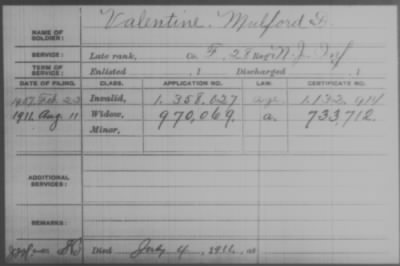 Valentine, Mulford D.
NAME OF SOLDIER:
SERVICE: Late rank, Co. F, 28 Reg't N.J. Inf
TERM OF SERVICE: Enlisted , 1 Discharged , 1
DATE OF FILING. CLASS. APPLICATION NO. LAW. CERTIFICATE NO.
1907. Feb. 23 Invalid, 1.358.027 age. 1.132.914
1911. Aug. 11 Widow, 970,069. a. 733,712.
Minor,
ADDITIONAL SERVICES:
REMARKS:
Died July 4, 1911, at